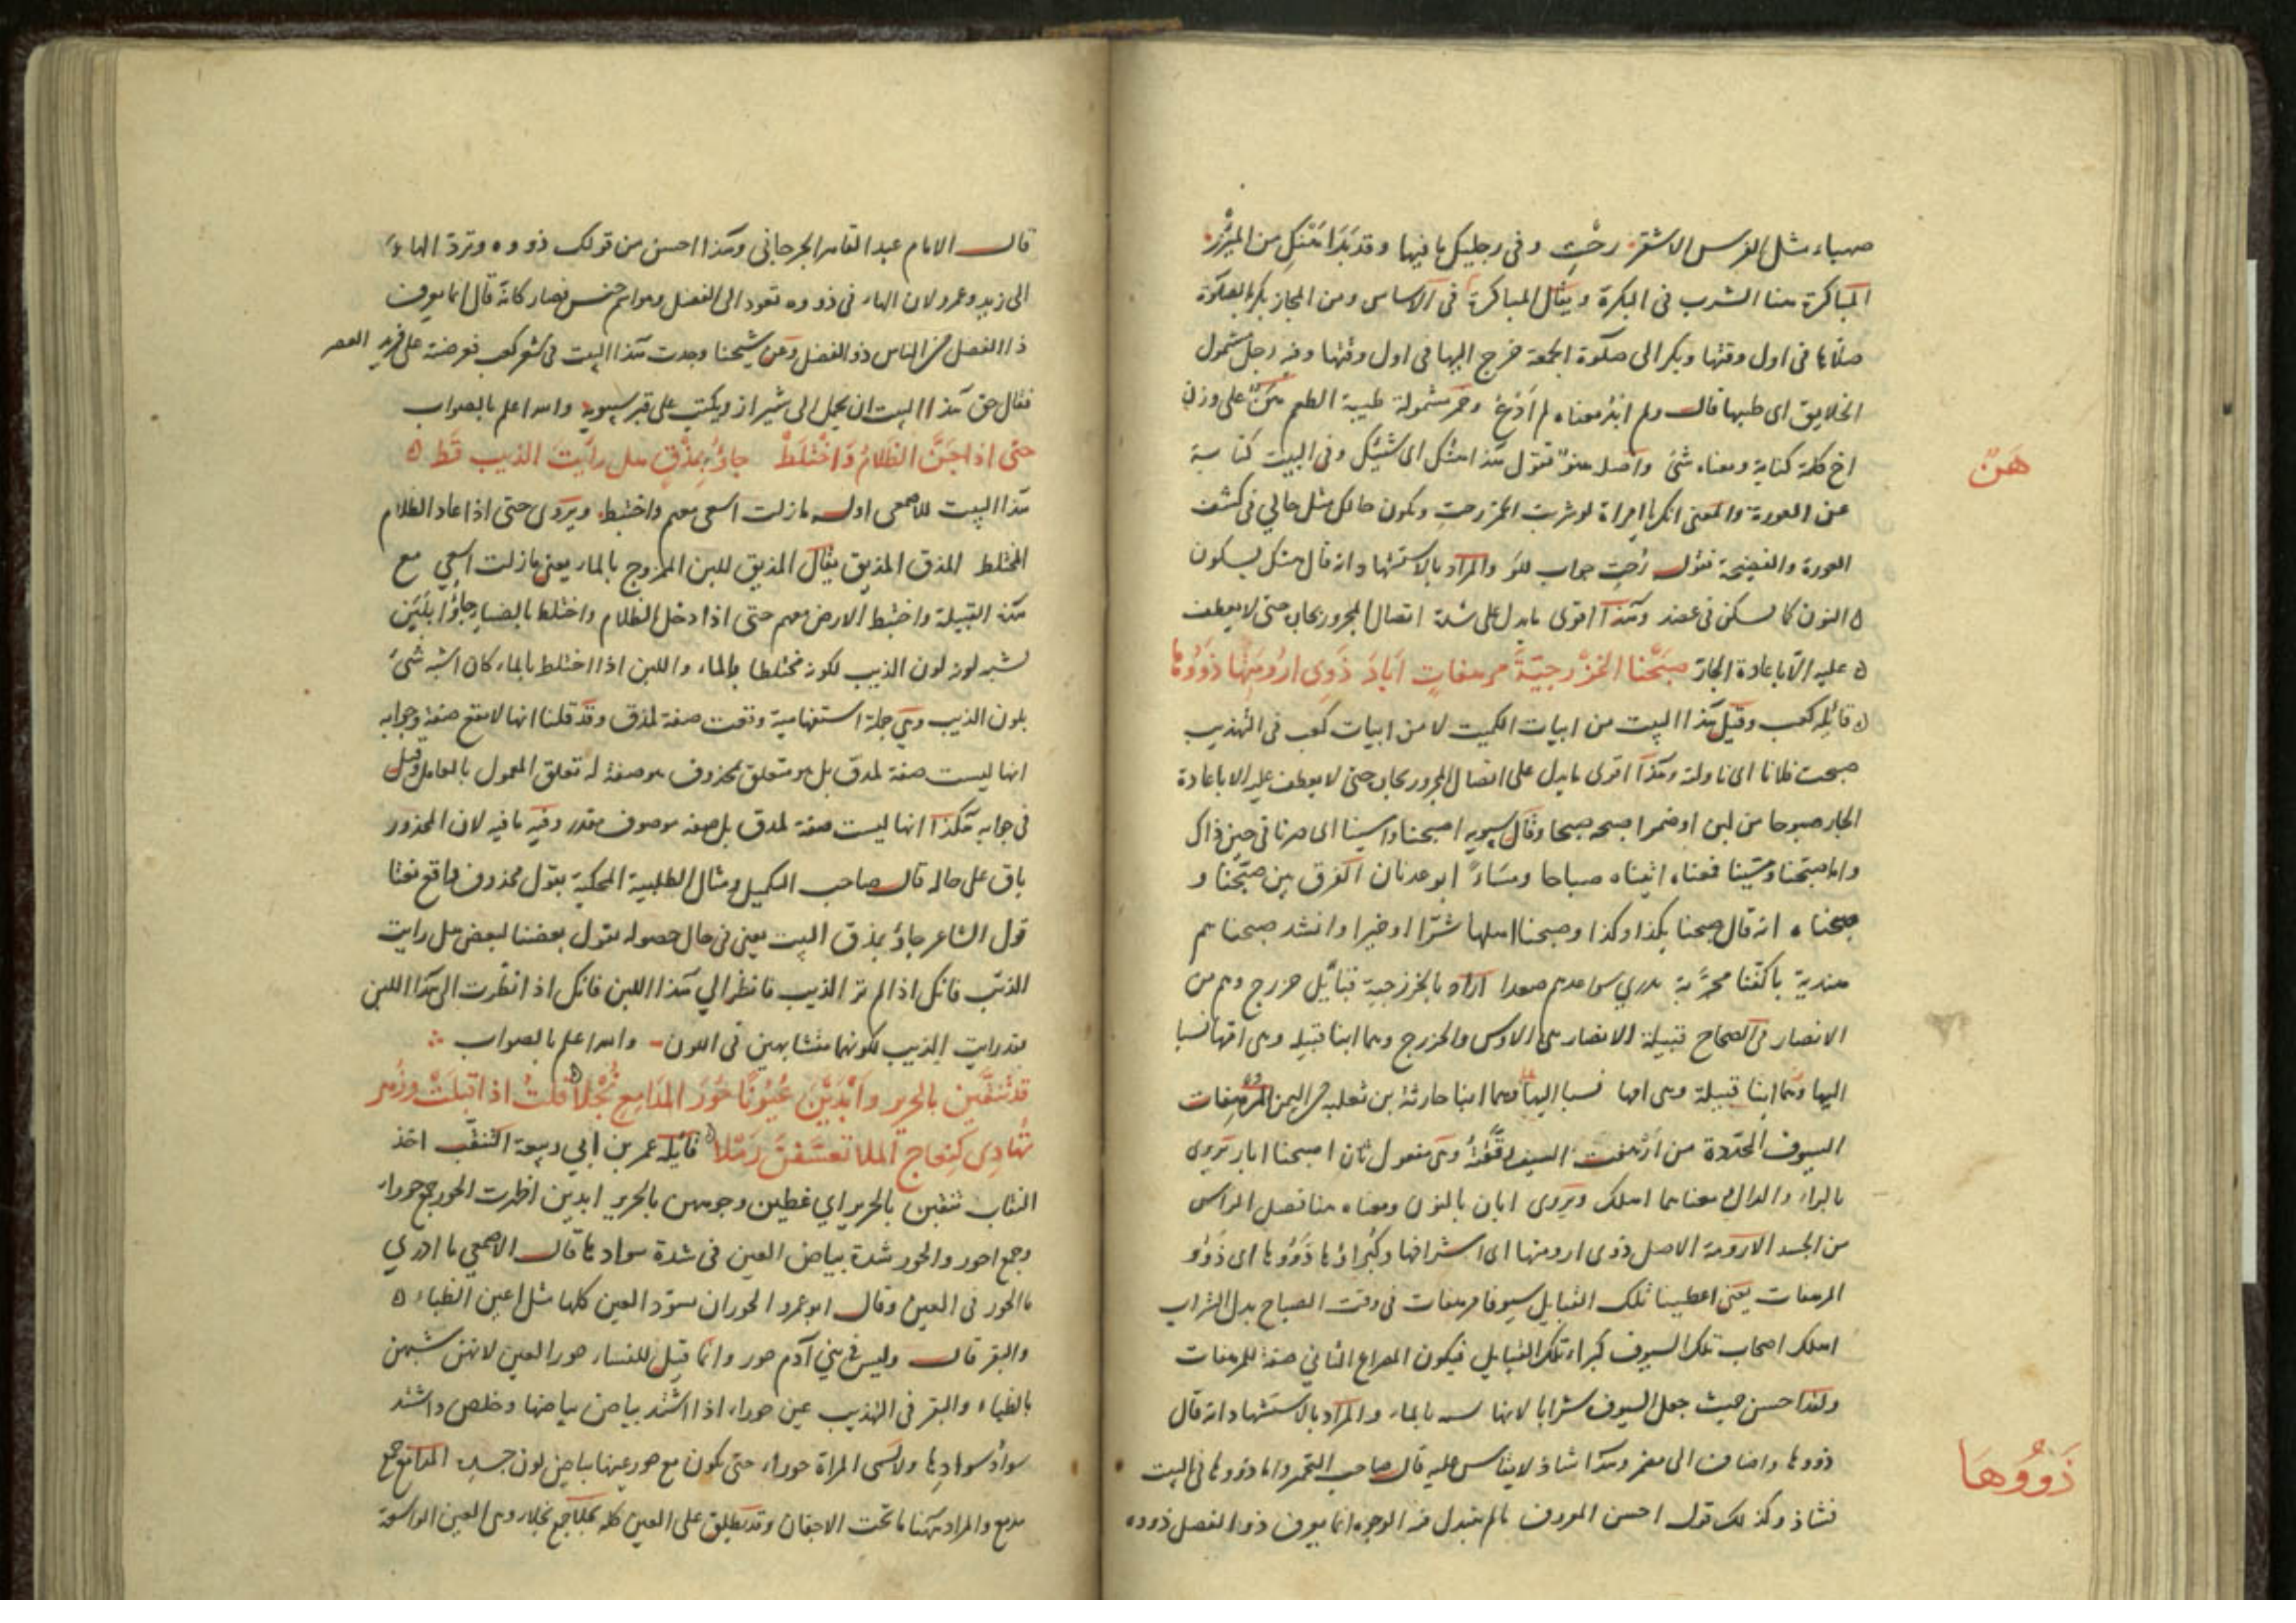 صهباء مثل الفرس الاشقر رحت وفى رجليك ما فيها وقد بدا هنك من الميزر
المباكرة هنا الشرب فى البكرة ويقال المباكرة فى الاساس ومن المجاز بكر بالصلوة
صلاها فى اول وقتها وبكر الى صلوة الجمعة خرج اليها فى اول وقتها وفيه رجل مشمول
الخلايق اى طيبها قال ولم معناه لم وخمر مشمولة طيبة الطعم هن على وزن
هَنٌ
اخ كلمة كناية ومعناه شئ واصله هنو تقول هذا هنك اى شيئك وفى البيت كناية
عن العورة والمعنى انك يا امراة لو شربت الخمر رحت وتكون حالك مثل حالي فى كشف
العورة والفضيحة فقوله رحت جواب للو والمراد بالاستشهاد انه قال هنك بسكون
النون كما يسكن فى عضد وهذا اقوى ما يدل على شدة اتصال المجرور بجاره حتى لا يعطف
عليه الا باعادة الجار صَبَّحْنا الخَزْرجيّةَ مرهفاتٍ اَبادَ ذَوِى ارُومَتِها ذَوُوها
قائله كعب وقيل هذا البيت من ابيات الكميت لا من ابيات كعب فى التهذيب
صبحت فلانا اى ناولته وهذا اقوى ما يدل على اتصال المجرور بجاره حتى لا يعطف عليه الا باعادة
الجار صبوحا من لبن او خمر اصبحه صبحا وقال سيبويه اصبحنا وامسينا اى صرنا فى حين ذاك
واما صبحنا ومسينا فمعناه اتيناه صباحا ومساءً ابو عدنان الفرق بين صبّحنا و
صبحناه انه قال صبحنا بكذا وكذا وصبحنا اهلها شرّا او خيرا وانشد صبحناهم
هندية باكفنا مجرّبة سواعدهم صعدا اراد بالخزرجية قبائل خزرج وهم من
الانصار فى الصحاح قبيلة الانصار هى الاوس والخزرج وهما ابنا قيله وهى امهما نسبا
اليها وهما ابنا قبيلة وهى امها نسبا اليها وهما ابنا حارثة بن ثعلبه من اليمن المرهفات
السيوف المحدّدة من ارهفت السيف رققته وهى مفعول ثان اصبحنا اباد يروى
بالراء والدال معناهما اهلك ويروى ابان بالنون ومعناه هنا فصل الراس
من الجسد الارومة الاصل ذوى ارومتها اى اشرافها وكبراؤها ذووها اى ذوو
المرهفات يعنى اعطينا تلك القبايل سيوفا مرهفات فى وقت الصباح بدل الشراب
اهلك اصحاب تلك السيوف كبراء تلك القبايل فيكون المصراع الثاني صفة للمرهفات
ولهذا حسن حيث جعل السيوف شرابا لانها بالماء والمراد بالاستشهاد انه قال
ذَوُوهَا
ذووها واضاف الى مضمر وهذا شاذ لا يقاس عليه قال صاحب التخمير واما ذووها فى البيت
فشاذ وكذلك قول احسن المعروف ما لم تبتذل فيه الوجوه انما يعرف ذو الفضل ذووه
قال الامام عبد القاهر الجرجانى وهذا احسن من قولك ذووه وترد الهاء
الى زيد وعمرو لان الهاء فى ذووه تعود الى الفضل وهو اسم جنس فصار كانه قال انما يعرف
ذا الفضل من الناس ذو الفضل وعن شيخنا وجدت هذا البيت فى شعر كعب فعرضته على فريد العصر
فقال حق هذا البيت ان يحمل الى شيراز ويكتب على قبر سيبويه والله اعلم بالصواب
حتى اذا جَنَّ الظلامُ وَاخْتَلَطْ جاؤُا بِمَذْقٍ هل رايتَ الذيب قَط
هذا البيت للاصمعى اوله ما زلت اسعى معهم واختبط ويروى حتى اذا عاد الظلام
المختلط المذق المذيق يقال المذيق للبن الممزوج بالماء يعنى ما زلت اسعي مع
هذه القبيلة واختبط الارض معهم حتى اذا دخل الظلام واختلط بالضياء جاؤا بلبن
يشبه لونه لون الذيب لكونه مختلطا بالماء واللبن اذا اختلط بالماء كان اشبه شئ
بلون الذيب وهى جملة استفهامية وقعت صفة لمذق وقد قلنا انها لا تقع صفة وجوابه
انها ليست صفة لمذق بل هو متعلق بمحذوف هو صفة له تعلق المعمول بالعامل وقيل
فى جوابه هكذا انها ليست صفة لمذق بل صفة موصوف مقدر وفيه ما فيه لان المحذور
باق على حاله قال صاحب التكميل ومثال الطلبية المحكية بقول محذوف واقع نعتا
قول الشاعر جاؤا بمذق البيت يعنى فى حال حصوله يقول بعضنا لبعض هل رايت
الذئب فانك اذا لم تر الذيب فانظر الي هذا اللبن فانك اذا نظرت الى هذا اللبن
فقد رايت الذيب لكونهما متشابهين فى اللون والله اعلم بالصواب
قد تنقَّبن بالحرير وَابْدَيْنَ عُيُونًا حُورَ المَدَامِعِ نُجْلا قلتُ اذا اقبلَتْ وزُهر
تهَادِى كنِعاج المَلا تعسَّفْنَ رَمْلا قائله عمر بن ابي ربيعة التنقب اخذ
النقاب تنقبن بالحرير اي غطين وجوههن بالحرير ابدين اظهرت الحور جمع حوراء
وجمع احور والحور شدة بياض العين فى شدة سوادها قال الاصمعي ما ادري
ما الحور فى العين وقال ابو عمرو الحور ان تسودّ العين كلها مثل اعين الظباء
والبقر قال وليس فى بني آدم حور وانما قيل للنساء حور العين لانهن شبهن
بالظباء والبقر فى التهذيب عين حوراء اذا اشتد بياض بياضها وخلص واشتد
سواد سوادها ولا تسمى المراة حوراء حتى تكون مع حور عينها بياض لون جسده المدامع جمع
مدمع والمراد ههنا ما تحت الاجفان وقد يطلق على العين كله نجلا جمع نجلاء وهى العين الواسعة